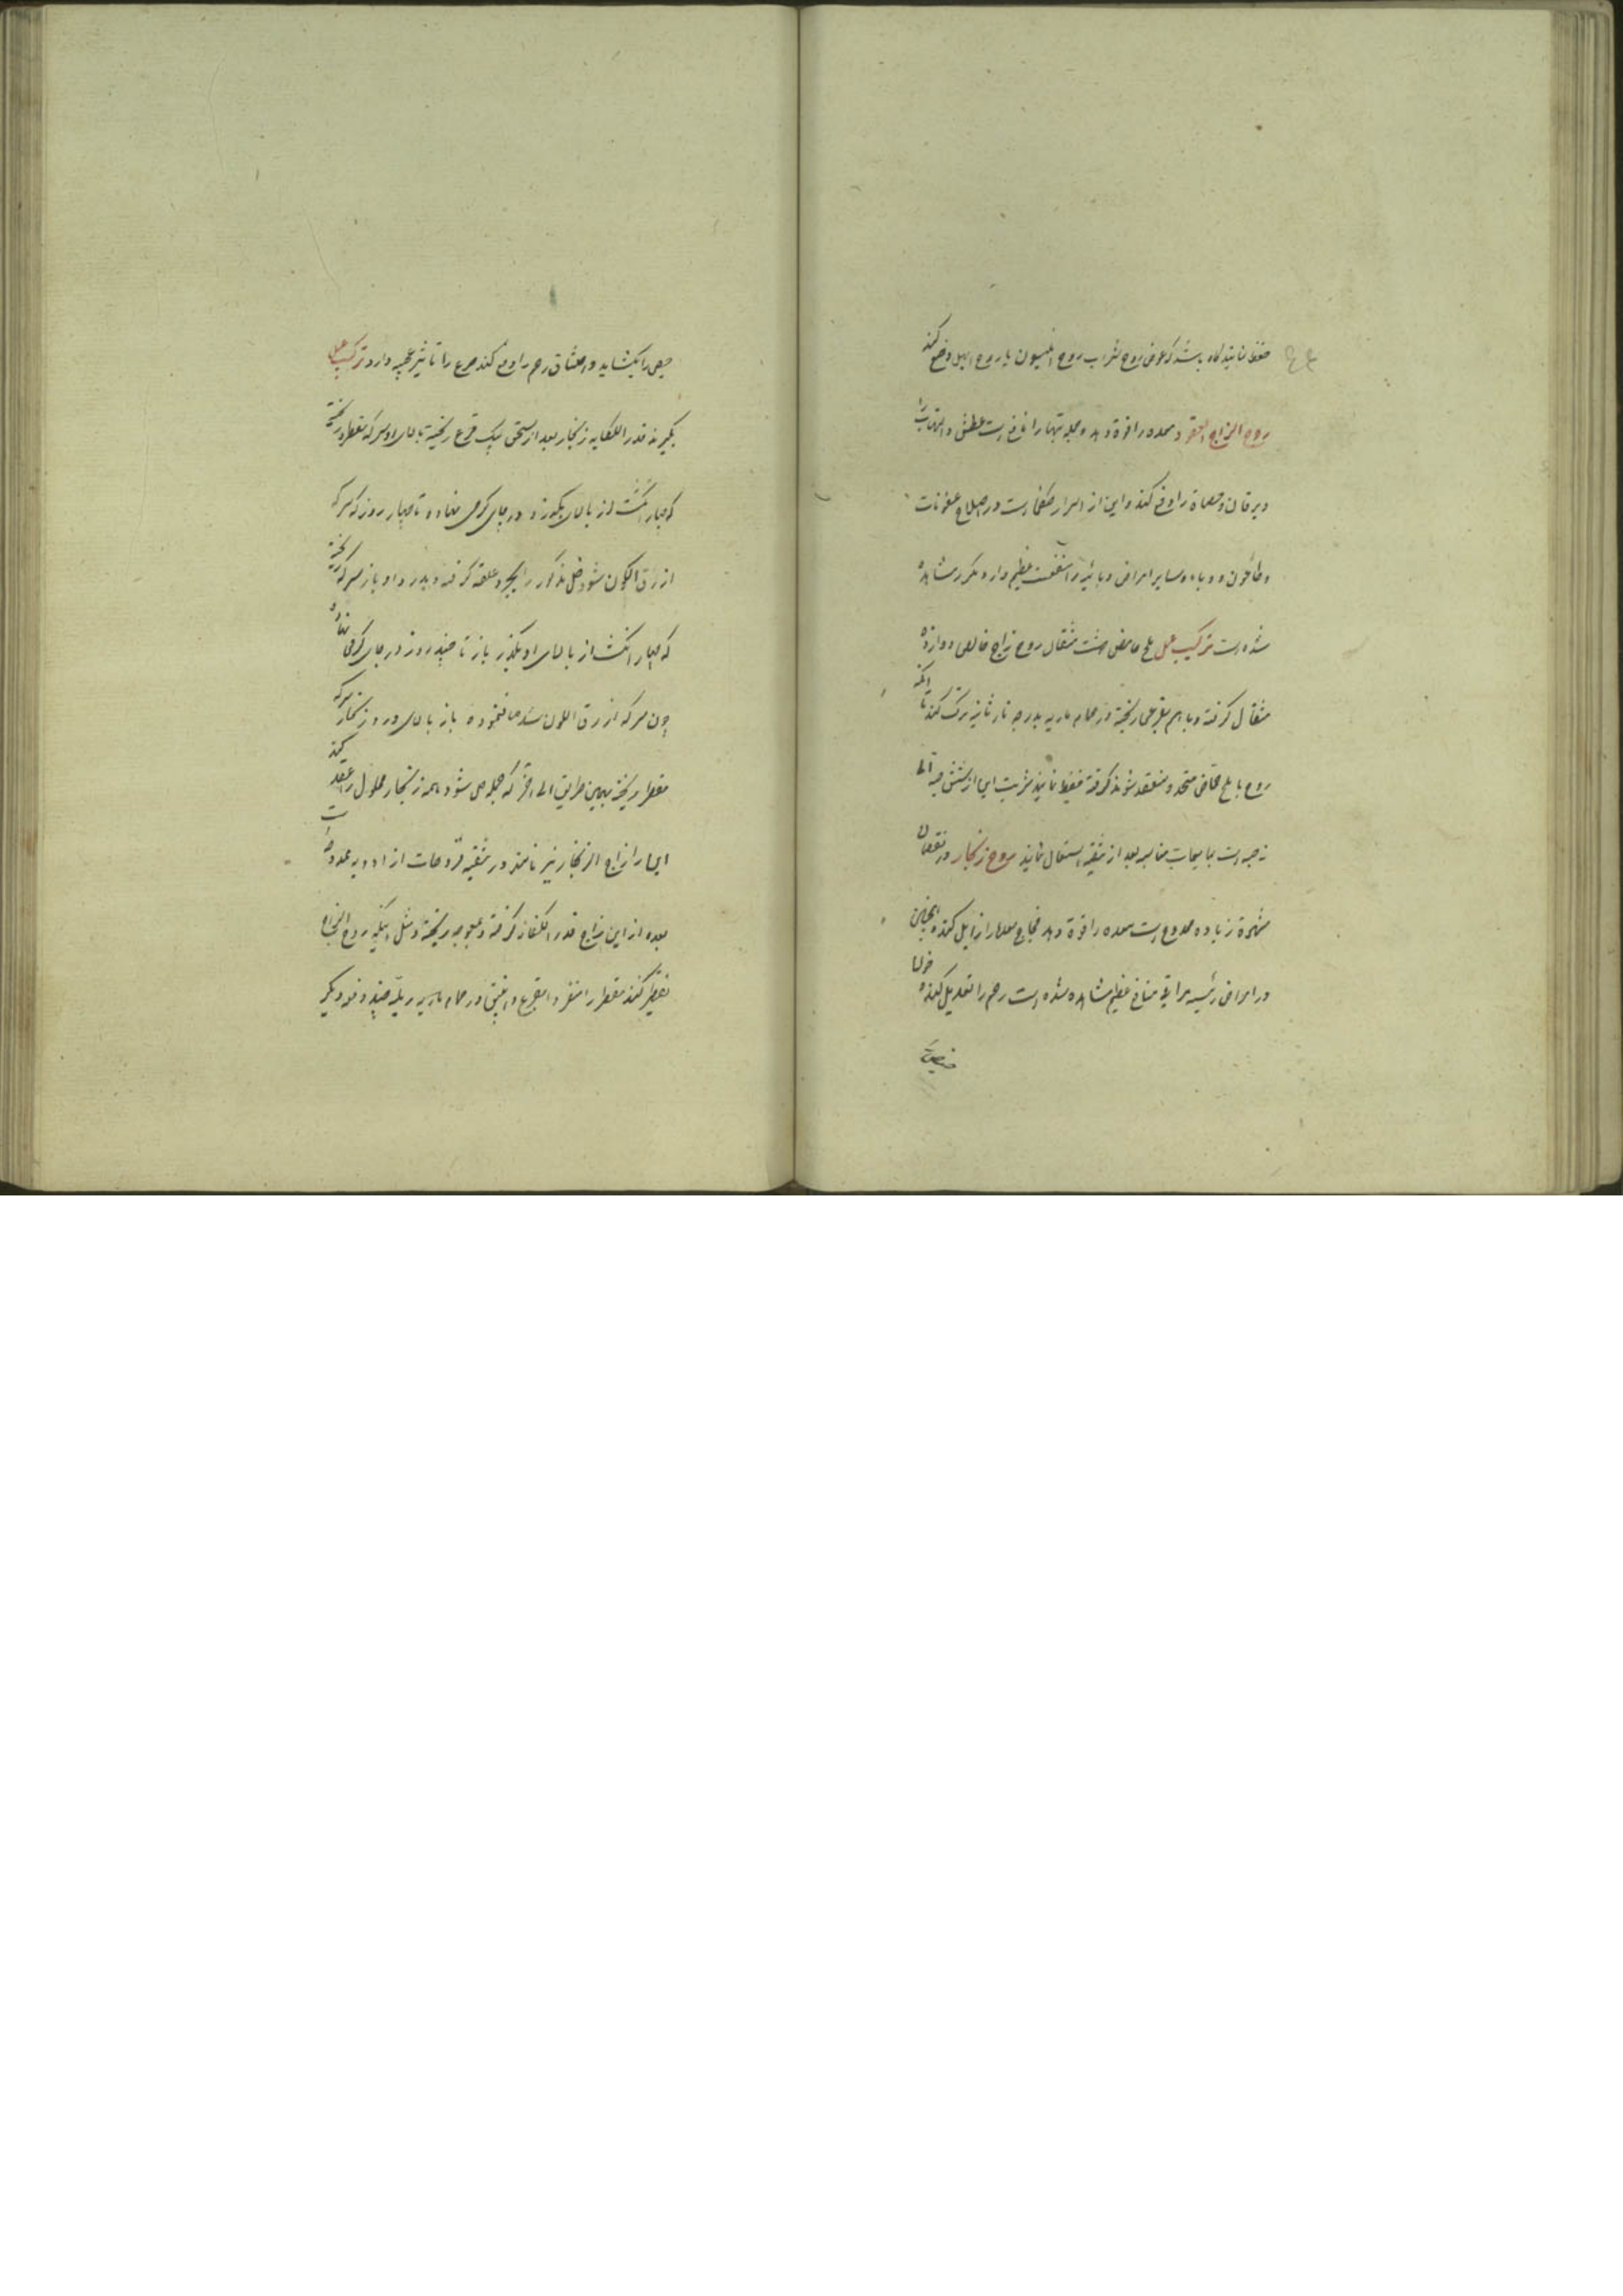 حفظ نمایند گاه باشد که عوض روح شراب روح انیسون یا روح ابهل وضع کند
روح الزاج معده را قوة دهد و جمله تبها را نافع است عطش و التهاب را
و یرقان و حصاة را دفع کند و این از اسرار است در اصلاح عفونات
و طاعون و وباء و سایر امراض وبائیه را منفعت عظیم دارد مکرر مشاهده
شده است ترکیب عمل ملح حامض هشت مثقال روح زاج خالص دوازده
مثقال کرفته و با هم بقرعی ریخته در حمام ماریه بدرجه نار ثانیه ترک کند تا آنکه
روح با ملح متحد و منعقد شوند کرفته حفظ نمایند شربت این از شش حبه الی
حبه است بمایعات مناسبه بعد از تنقیه استعمال نمایند روح زنجار در نقصان
شهوة زیاده ممدوح است معده را قوة دهد را زایل کند همچنین
در امراض رئیسه منافع عظیم مشاهده شده است رحم را تعدیل کند و خون
حیض
حیض را بکشاید و اختناق رحم را دفع کند صرع را تاثیر عجیبه دارد ترکیب عمل
بکیرند قدر الکفایه زنجار بعد از سحق بیک قرع ریخته بالای او سرکه مقطر ریخته
که چهار انکشت از بالای بکذرد در جای کرمی نهاده تا چهار روز که سرکه
ازرق اللون شود خل مذکور را علقه کرفته و بدر داد باز سرکه ریخته
که چهار انکشت از بالای او بکذرد باز تا چند روز در جای کرمی نهاده
چون سرکه ازرق اللون شد صاف نموده باز بالای دردی زنجار سرکه
مقطر ریخته بهمین طریق الی آخر که شود همه زنجار محلول را عقد کنند
این را زاج الزنجار نیز نامند در تنقیه قروحات از ادویه ممدوحه است
بعده از این زاج قدر الکفاف کرفته ریخته مثل اینکه روح الزاج
تقطیر کنند مقطر را بقرع و انبیق در حمام ماریه چند دفعه دیکر